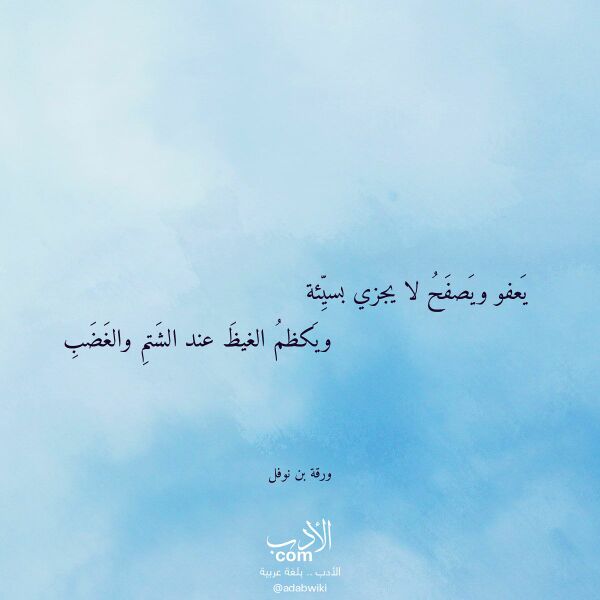 يَعفو ويَصفَحُ لا يجزي بسيِّئة
ويَكظمُ الغيظَ عند الشَتمِ والغَضَبِ
ورقة بن نوفل
الأدب
com
الأدب .. بلغة عربية
@adabwiki